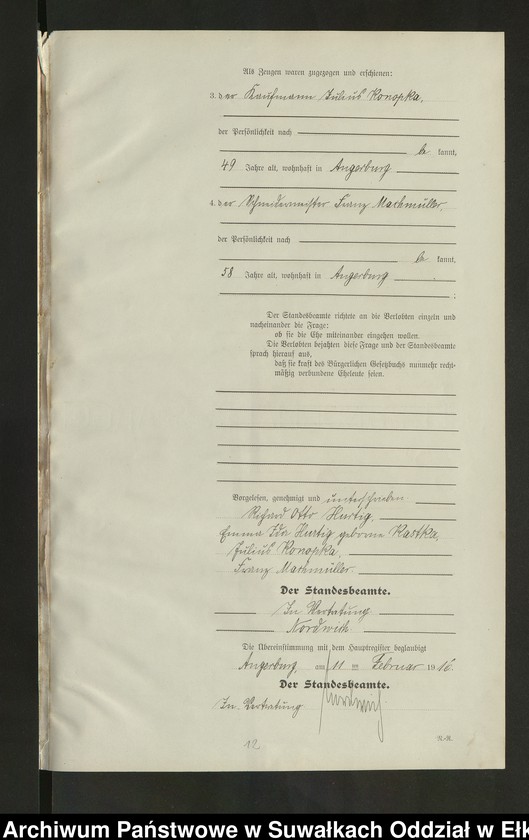 Als Zeugen waren zugezogen und erschienen:
3. der Kaufmann Julius Konopka,
der Persönlichkeit nach
be kannt,
49 Jahre alt, wohnhaft in Angerburg
4. der Schneidermeister Franz Machmüller,
der Persönlichkeit nach
be kannt,
58 Jahre alt, wohnhaft in Angerburg
.
Der Standesbeamte richtete an die Verlobten einzeln und
nacheinander die Frage:
ob sie die Ehe miteinander eingehen wollen.
Die Verlobten bejahten diese Frage und der Standesbeamte
sprach hierauf aus,
daß sie kraft des Bürgerlichen Gesetzbuchs nunmehr recht-
mäßig verbundene Eheleute seien.
Vorgelesen, genehmigt und unterschrieben
Richard Otto Hurtig,
Emma Ida Hurtig geborne Kastka,
Julius Konopka,
Franz Machmüller.
Der Standesbeamte.
In Vertretung
Nordwich
Die Übereinstimmung mit dem Hauptregister beglaubigt
Angerburg, am 11 ten Februar 1916.
Der Standesbeamte.
In Vertretung
12
Archiwum Państwowe w Suwałkach Oddział w Ełk